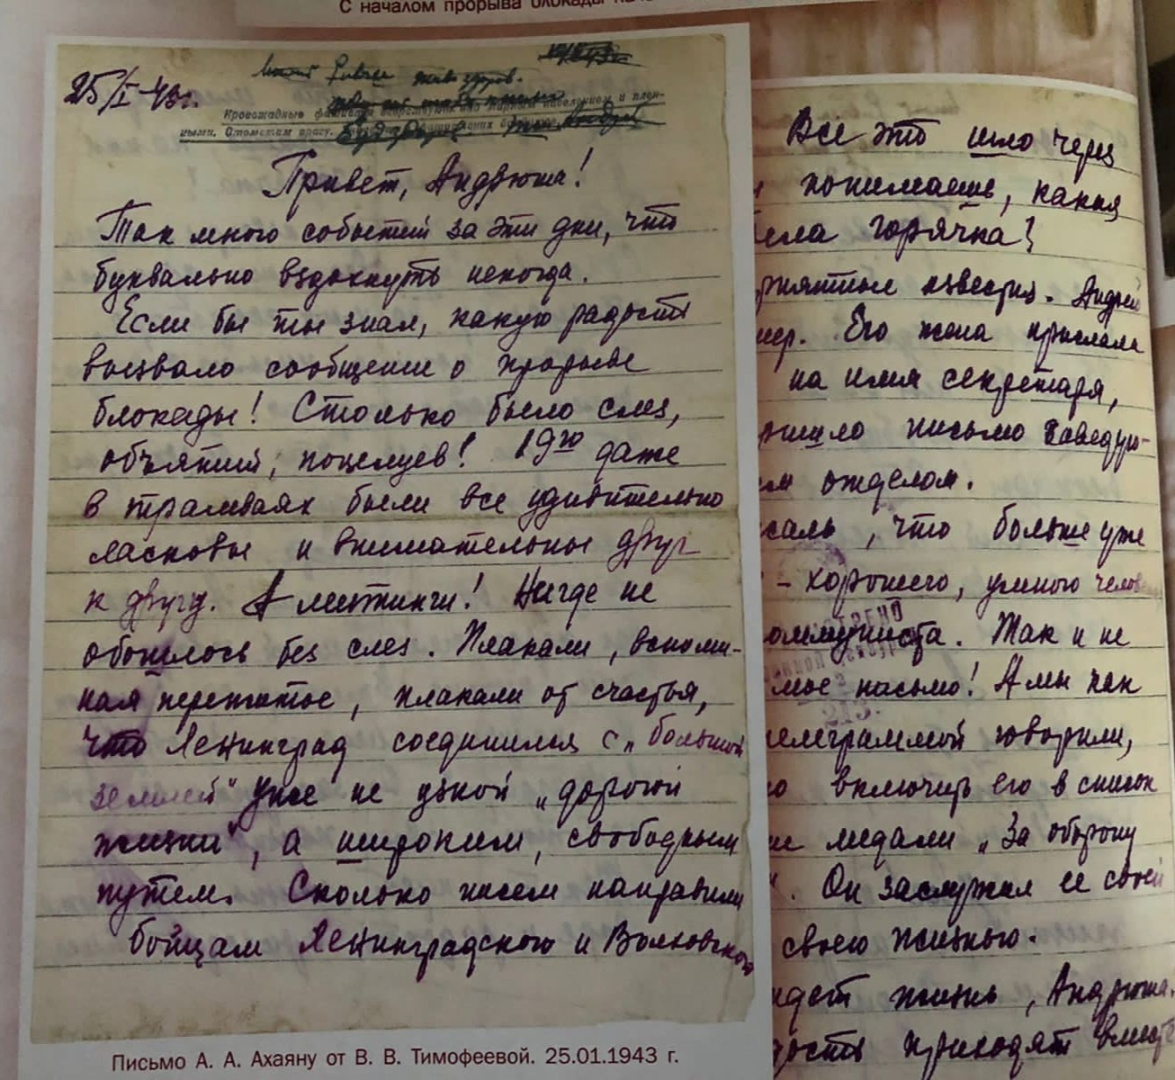 С началом прорыва блокады
25/I-43г.
жив здоров.
Кровожадные
ными. Отомстим врагу.
Привет, Андрюша!
Так много событий за эти дни, что
буквально вздохнуть некогда.
Если бы ты знал, какую радость
вызвало сообщение о прорыве
блокады! Столько было слез,
объятий, поцелуев! 19го даже
в трамваях были все удивительно
ласковы и внимательны друг
к другу. А митинги! Нигде не
обошлось без слез. Плакали, вспоми-
ная пережитое, плакали от счастья,
что Ленинград соединился с „большой
землей" уже не узкой „дорогой
жизни", а широким, свободным
путем. Сколько писем направили
бойцам Ленинградского и Волховского
Письмо А. А. Ахаяну от В. В. Тимофеевой. 25.01.1943 г.
Все это шло через
понимаешь, какая
горячка?
известия. Андрей
Его жена прислала
на имя секретаря,
письмо заведую-
отделом.
, что больше уже
- хорошего, умного
Так и не
письмо! А мы как
говорили,
включить его в список
медали „За оборону
. Он заслужил ее своей
своею жизнью.
жизнь, Андрюша.
приходят вместе